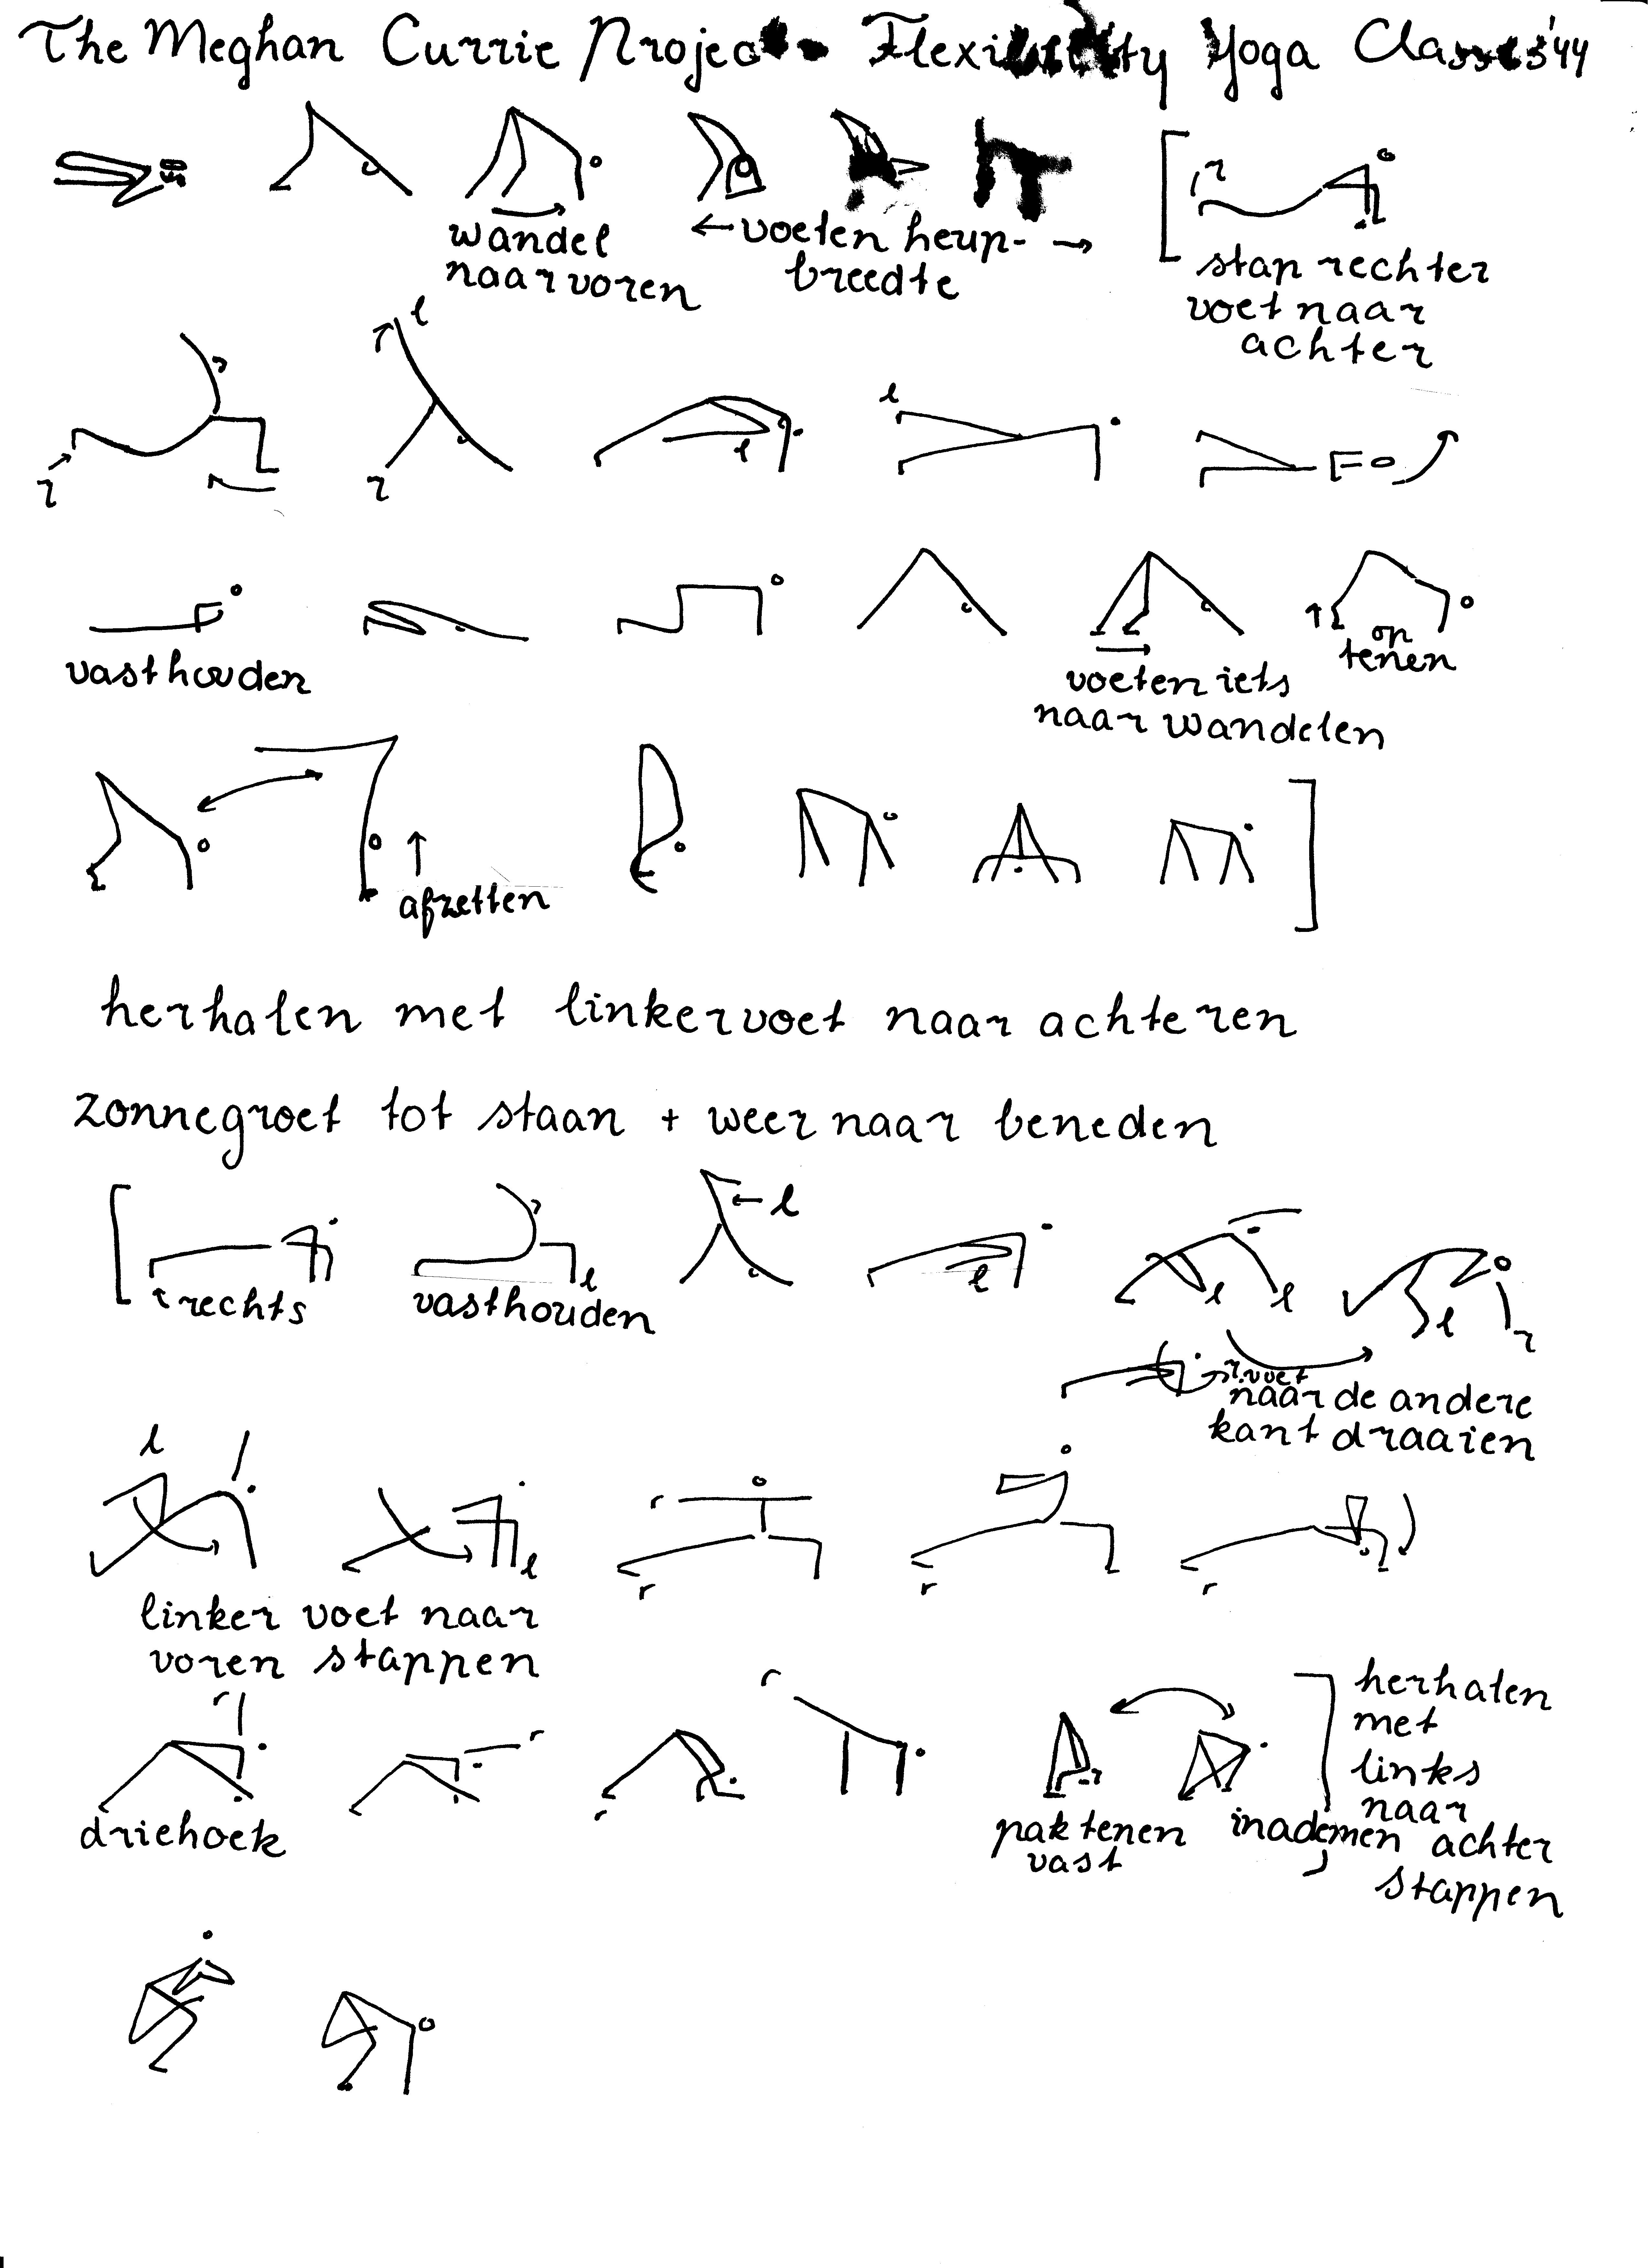 The Meghan Currie Project - Flexibility Yoga Classes '44
wandel
naar voren
← voeten heup- →
breedte
r
stap rechter
voet naar
achter
r
l
r
l
l
vasthouden
voeten iets
naar wandelen
op
tenen
afzetten
herhalen met linkervoet naar achteren
zonnegroet tot staan + weer naar beneden
rechts
l
vasthouden
← l
l
l
l
l
r
r. voet
naar de andere
kant draaien
l
l
linker voet naar
voren stappen
r
r
r
r
r
driehoek
r
r
r
pak tenen
vast
inademen
herhalen
met
links
naar
achter
stappen